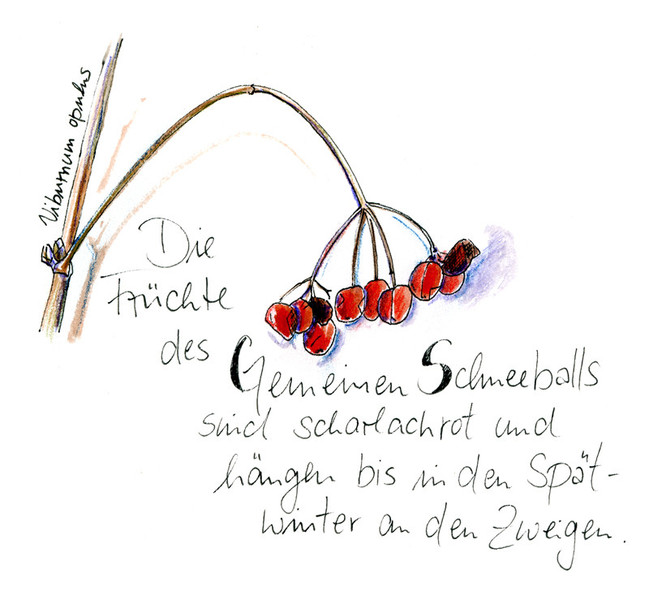 Viburnum opulus
Die
Früchte
des
Gemeinen Schneeballs
sind scharlachrot und
hängen bis in den Spät-
winter an den Zweigen.